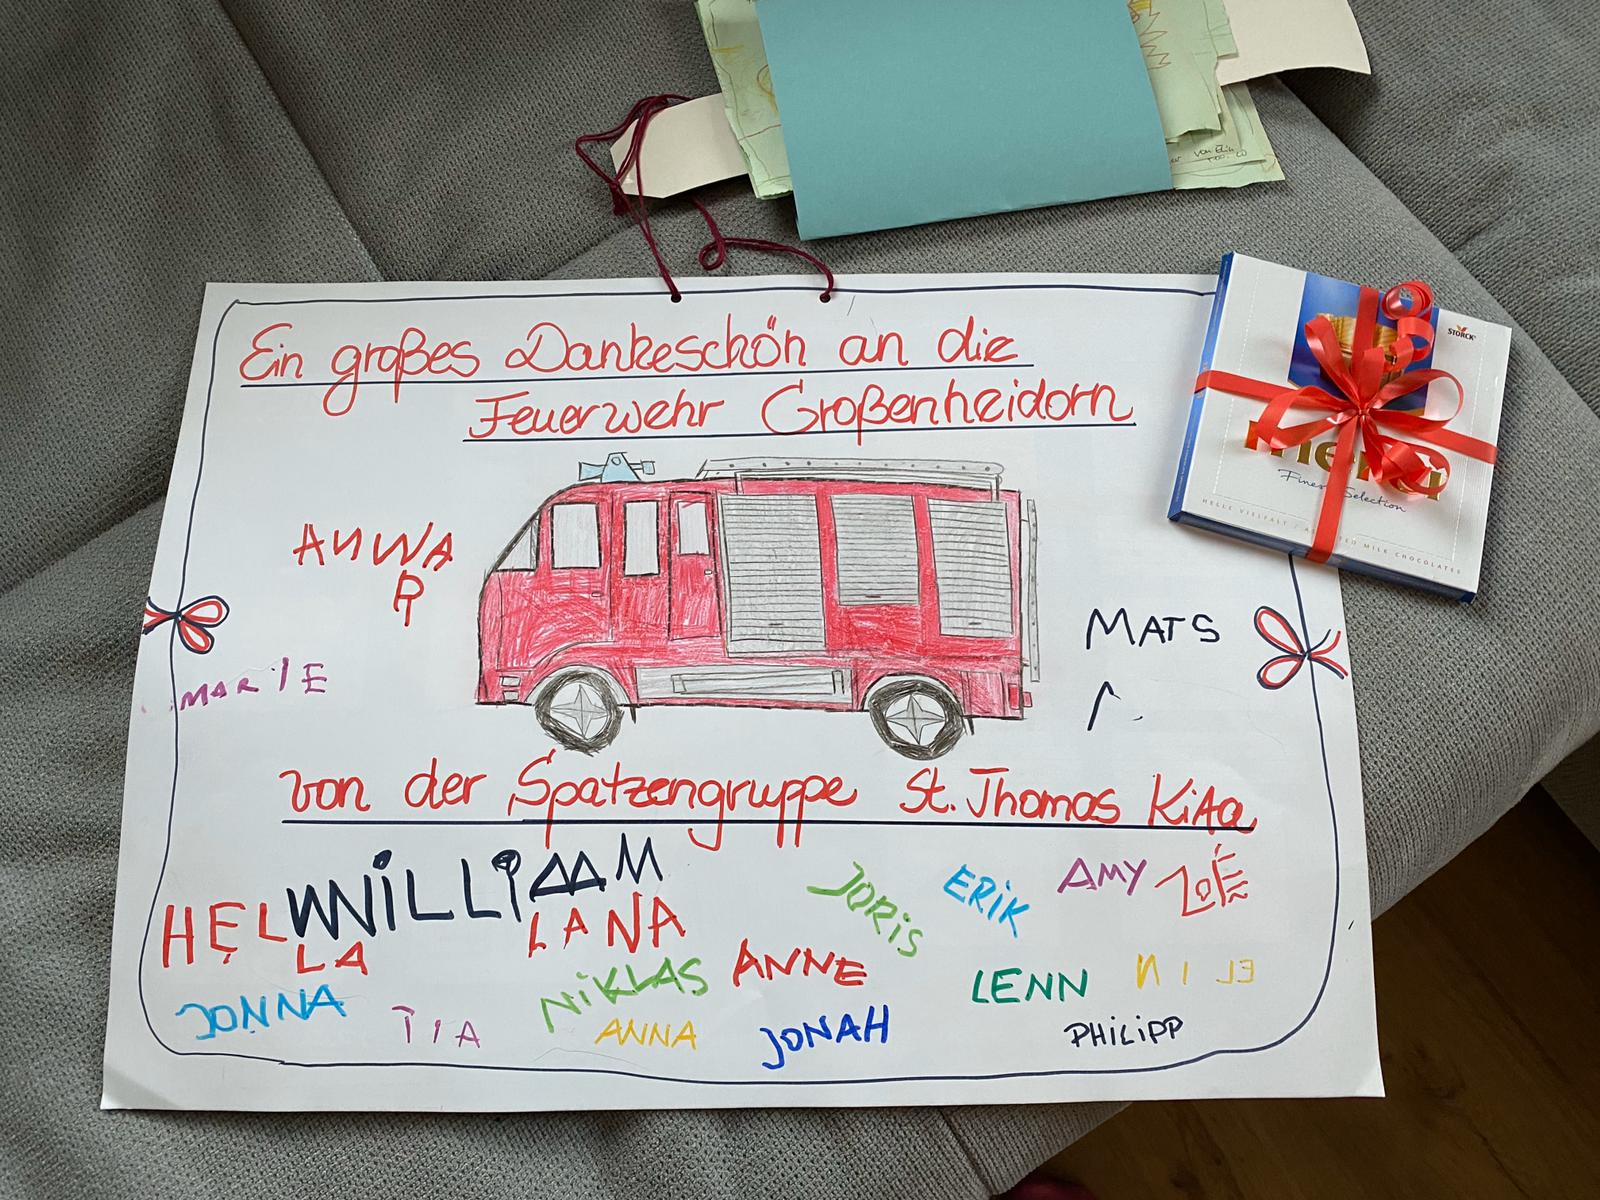 von Elin
Ein großes Dankeschön an die
Feuerwehr Großenheidorn
STORCK
merci
Finest Selection
HELLE VIELFALT / ASSORTED MILK CHOCOLATES
ANWA
R
MATS
MARIE
von der Spatzengruppe St. Thomas KiTa
WILLIAM
HEL
LA
LANA
JORIS
ERIK
AMY
ZOÉ
JONNA
TIA
NIKLAS
ANNE
ANNA
JONAH
LENN
NILE
PHILIPP